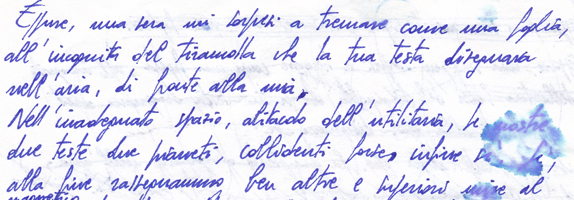 Eppure, una sera mi sorpresi a tremare come una foglia,
all'incognita del tiramolla che la tua testa disegnava
nell'aria, di fronte alla mia.
Nell'inadeguato spazio, abitacolo dell'utilitaria, le nostre
due teste due pianeti, collidenti forse, infine
alla fine rassegnammo ben altre e inferiori mire al